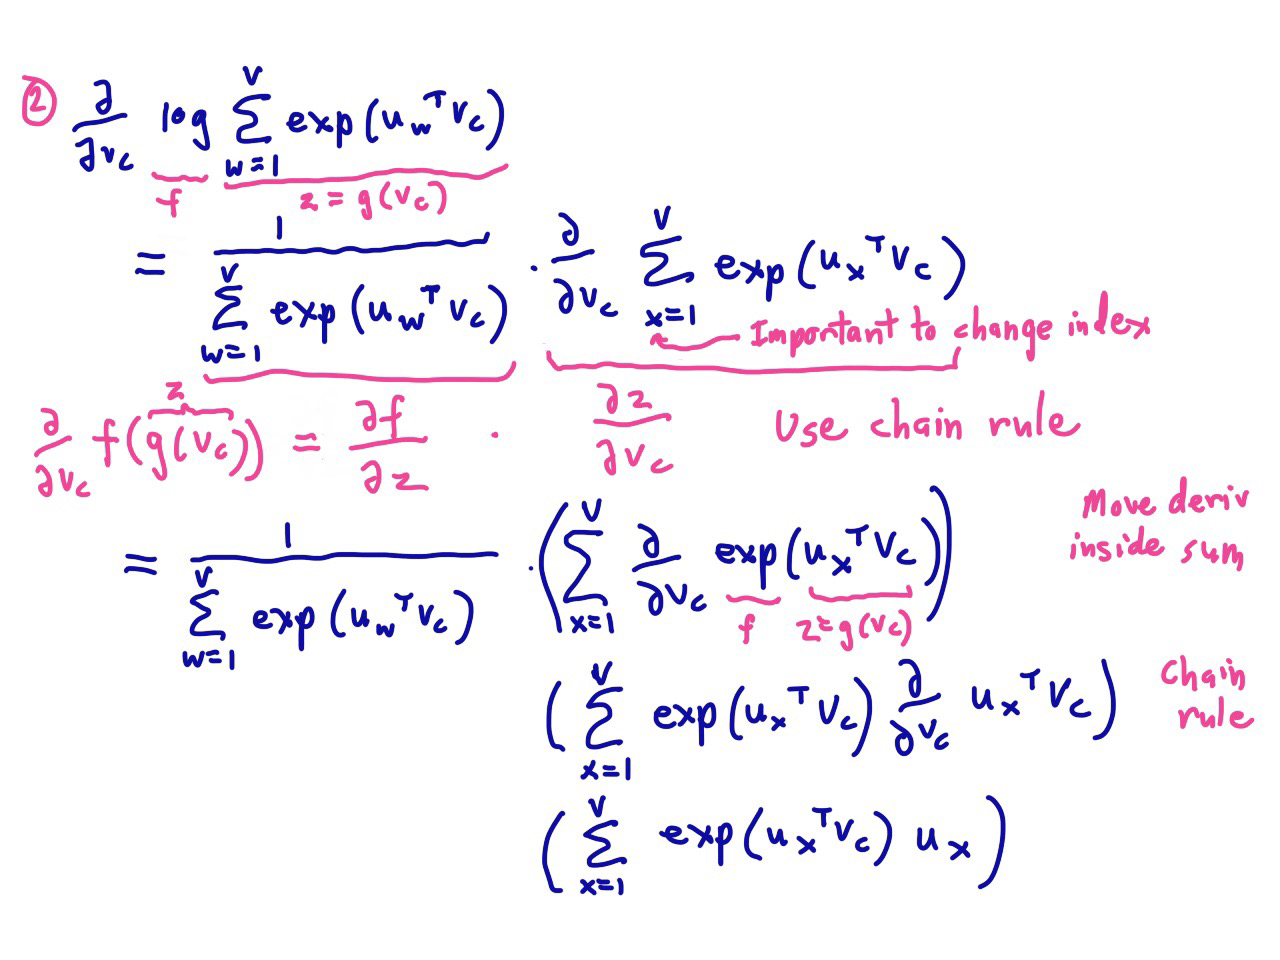 ② ∂/∂v_c log ∑_{w=1}^{V} exp(u_w^T v_c)
f z = g(v_c)
= 1 / ∑_{w=1}^{V} exp(u_w^T v_c) · ∂/∂v_c ∑_{x=1}^{V} exp(u_x^T v_c)
Important to change index
z
∂/∂v_c f(g(v_c)) = ∂f/∂z · ∂z/∂v_c Use chain rule
= 1 / ∑_{w=1}^{V} exp(u_w^T v_c) · (∑_{x=1}^{V} ∂/∂v_c exp(u_x^T v_c)) Move deriv
inside sum
f z=g(v_c)
(∑_{x=1}^{V} exp(u_x^T v_c) ∂/∂v_c u_x^T v_c) Chain
rule
(∑_{x=1}^{V} exp(u_x^T v_c) u_x)